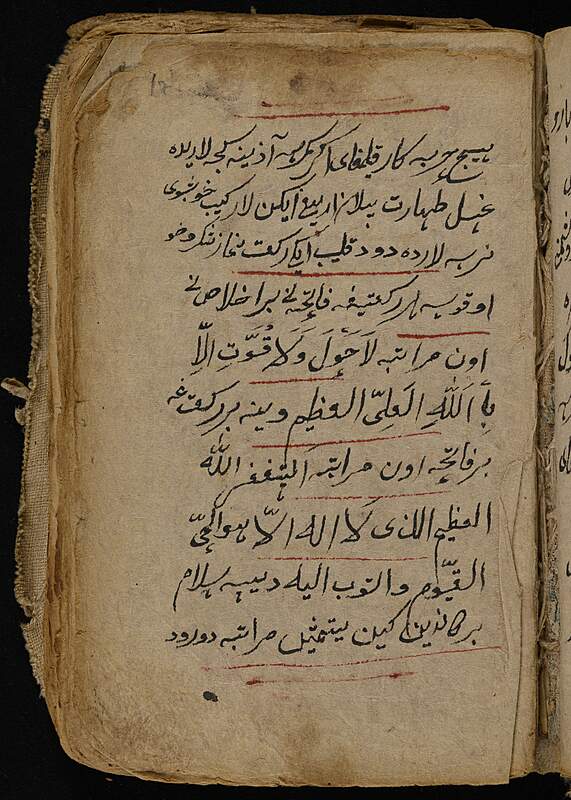 هیچ حربه کار قیلمغای اکر کیمرسه آذینه کیجه لاریده
غسل طهارت بیلان ایکن لار کیب خوشبوی
نرسه لارده دود قلیب ایکی رکعت نماز شکر وضو
اوقوسه هر رکعتیغه فاتحه نی بر اخلاص نی
اون مراتبه لَاحَوْلَ وَلَا قُوَّتَ اِلَّا
بِاَللّٰهِ الْعَلِیِّ العظیم وینه بر رکعت غه
بر فاتحه اون مراتبه استغفر اللّٰه
العظیم الذی لَا اله الّا هوالحیّ
القیّوم واتوب الیه دیسه سلام
برکاندین کین یتمیش مراتبه دورود